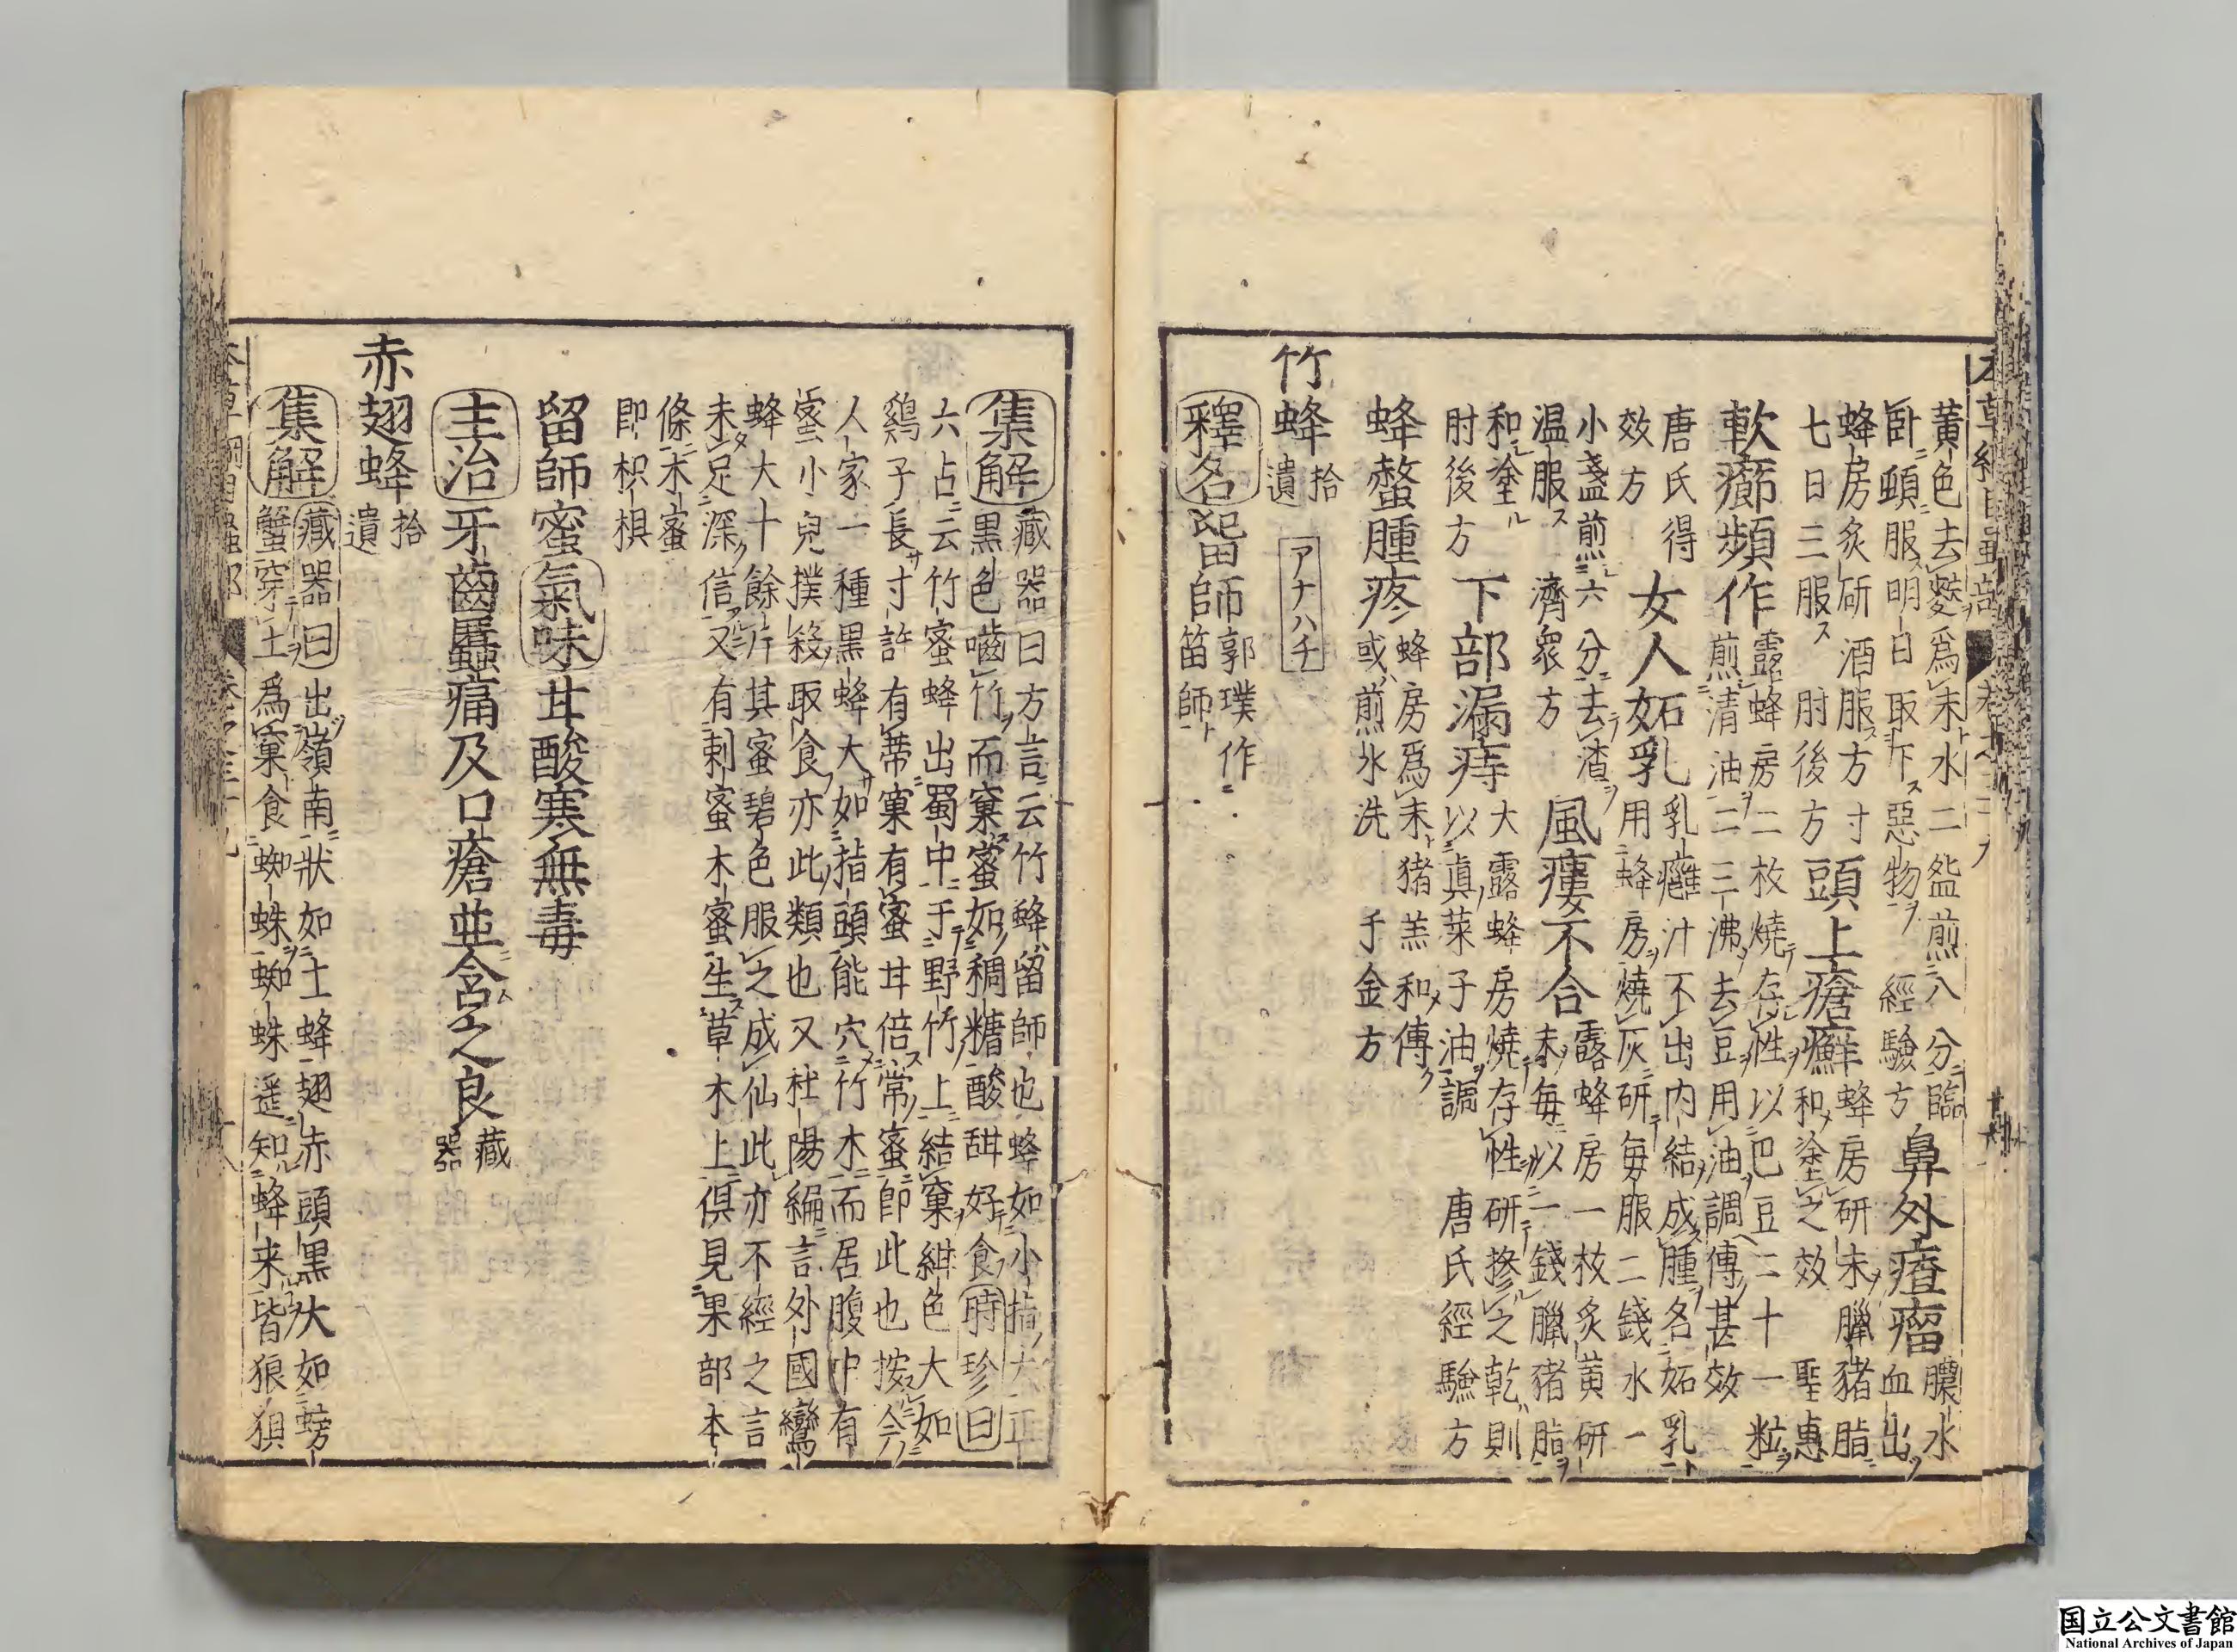 黄色去蟞爲末水二盌煎八分臨
臥頓服明日取下惡物　經驗方
鼻外瘡瘤
膿水
血出
蜂房炙研酒服方寸
七日三服　肘後方
頭上瘡癬
蜂房研末臘猪脂
和塗之效　聖惠
軟癤頻作
露蜂房二枚燒存性以巴豆二十一粒
煎清油二三沸去豆用油調傅甚效
唐氏得
效方
女人妬乳
乳癰汁不出内結成腫名妬乳
用蜂房燒灰研每服二錢水一
小盞煎六分去渣
温服　濟衆方
風瘻不合
露蜂房一枚炙黄研
末每以一錢臘猪脂
和塗
肘後方
下部漏痔
大露蜂房燒存性研掺之乾則
以眞菜子油調　唐氏經驗方
蜂螫腫疼
蜂房爲末猪羔和傅
或煎水洗　千金方
竹蜂
拾
遺
アナハチ
釋名
留師
郭璞作
笛師
集解
藏器曰方言云竹蜂留師也蜂如小指大正
黒色嚙竹而窠蜜如稠糖酸甜好食時珍曰
六占云竹蜜蜂出蜀中于野竹上結窠紺色大如
鷄子長寸許有蔕窠有蜜甘倍常蜜即此也按今
人家一種黒蜂大如指頭能穴竹木而居腹中有
蜜小兒撲殺取食亦此類也又杜陽編言外國鸞
蜂大十餘斤其蜜碧色服之成仙此亦不經之言
未足深信又有刺蜜木蜜生草木上倶見果部本
條木蜜
即枳椇
留師蜜
氣味
甘酸寒無毒
主治
牙齒䘌痛及口瘡並含之良
藏
器
赤翅蜂
拾
遺
集解
藏器曰出嶺南狀如土蜂翅赤頭黒大如螃
蟹穿土爲窠食蜘蛛蜘蛛遥知蜂来皆狼狽
国立公文書館
National Archives of Japan